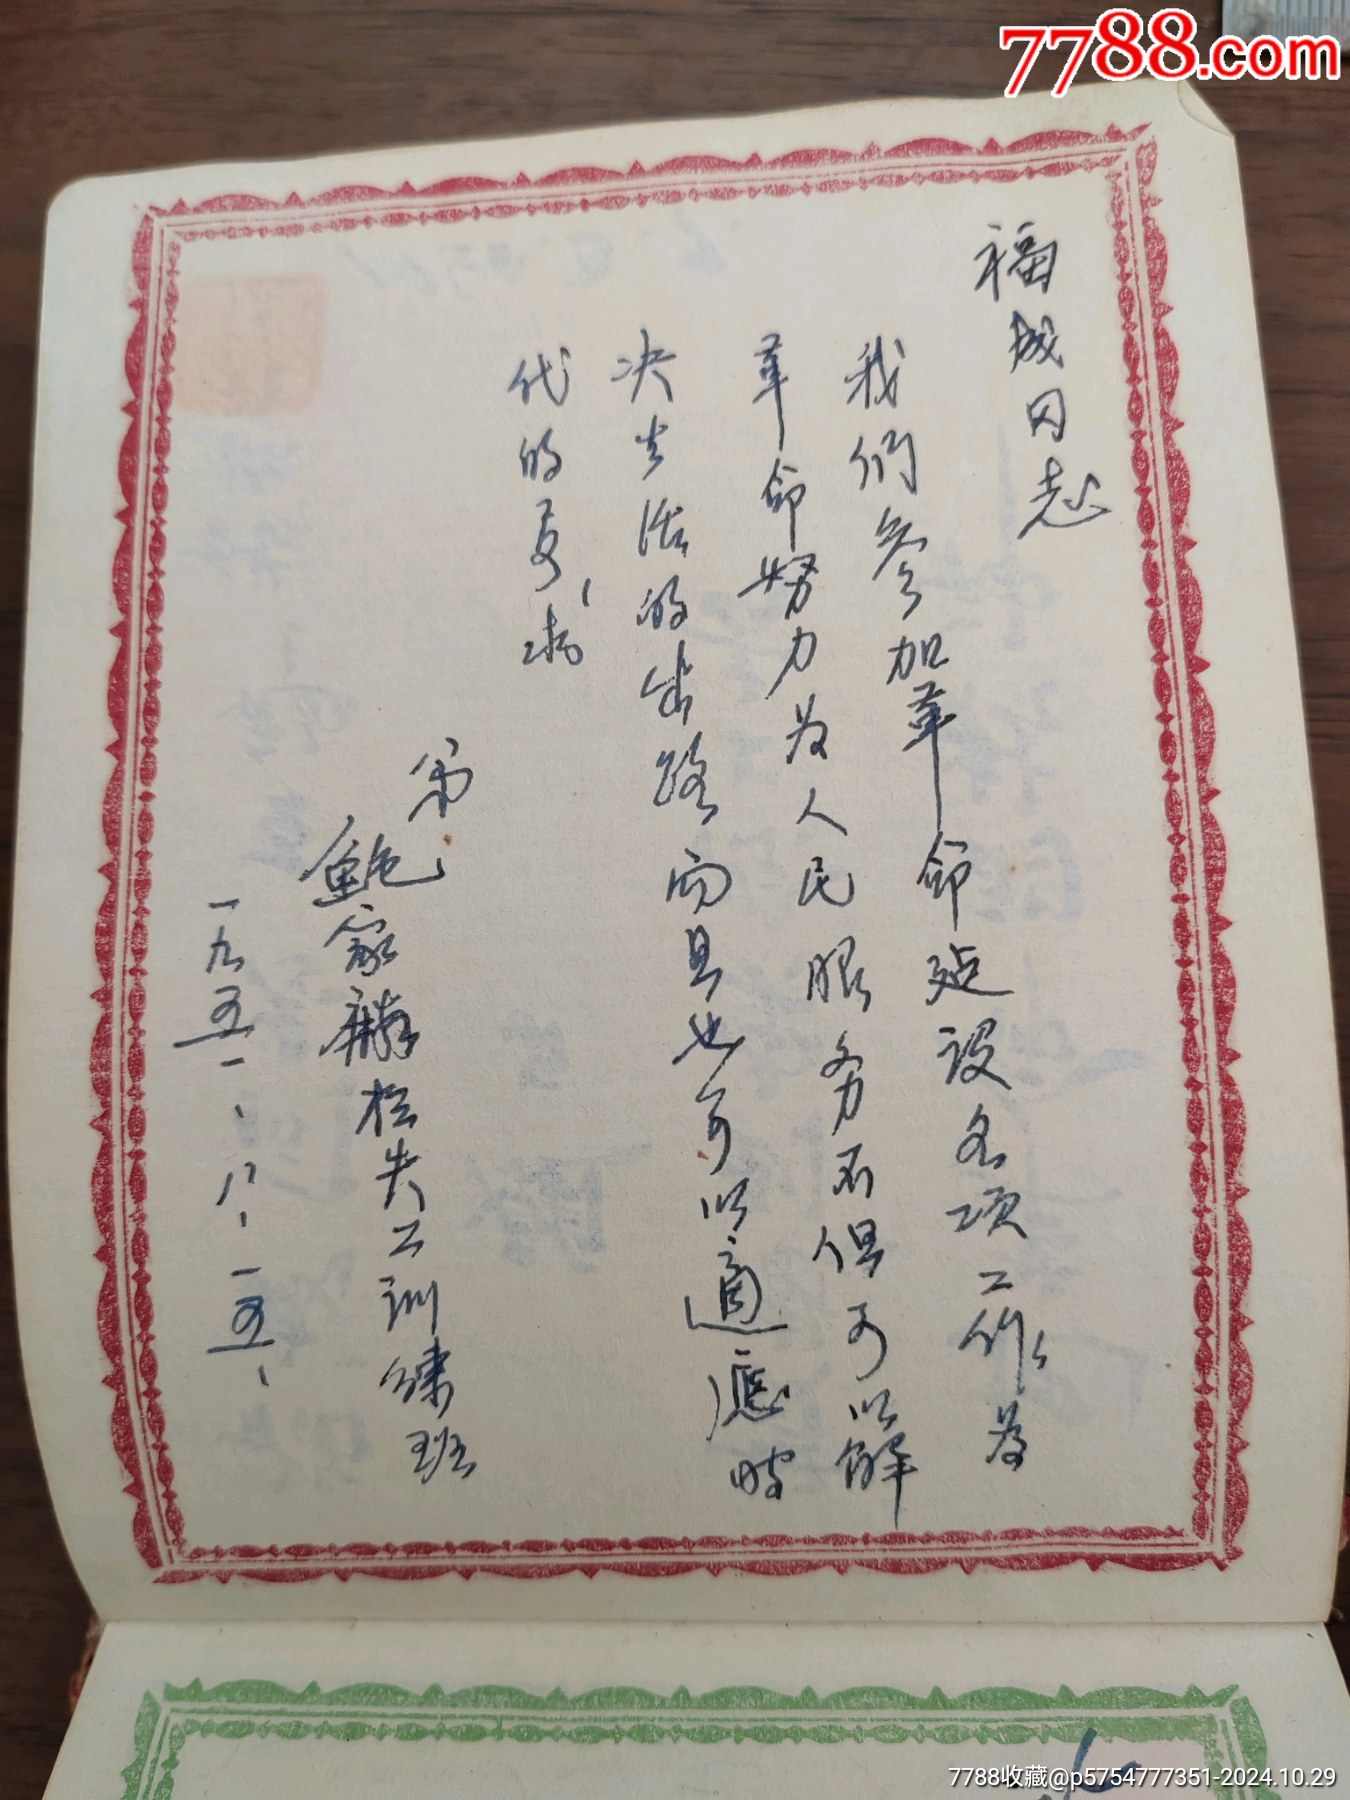 7788.com
福成同志
我们参加革命建设各项工作为
革命努力为人民服务不但可以解
决生活的出路而且也可以適應时
代的要求、
弟
鲍家麟 松失工训練班
一九五一、八、一五、
7788收藏@p5754777351-2024.10.29